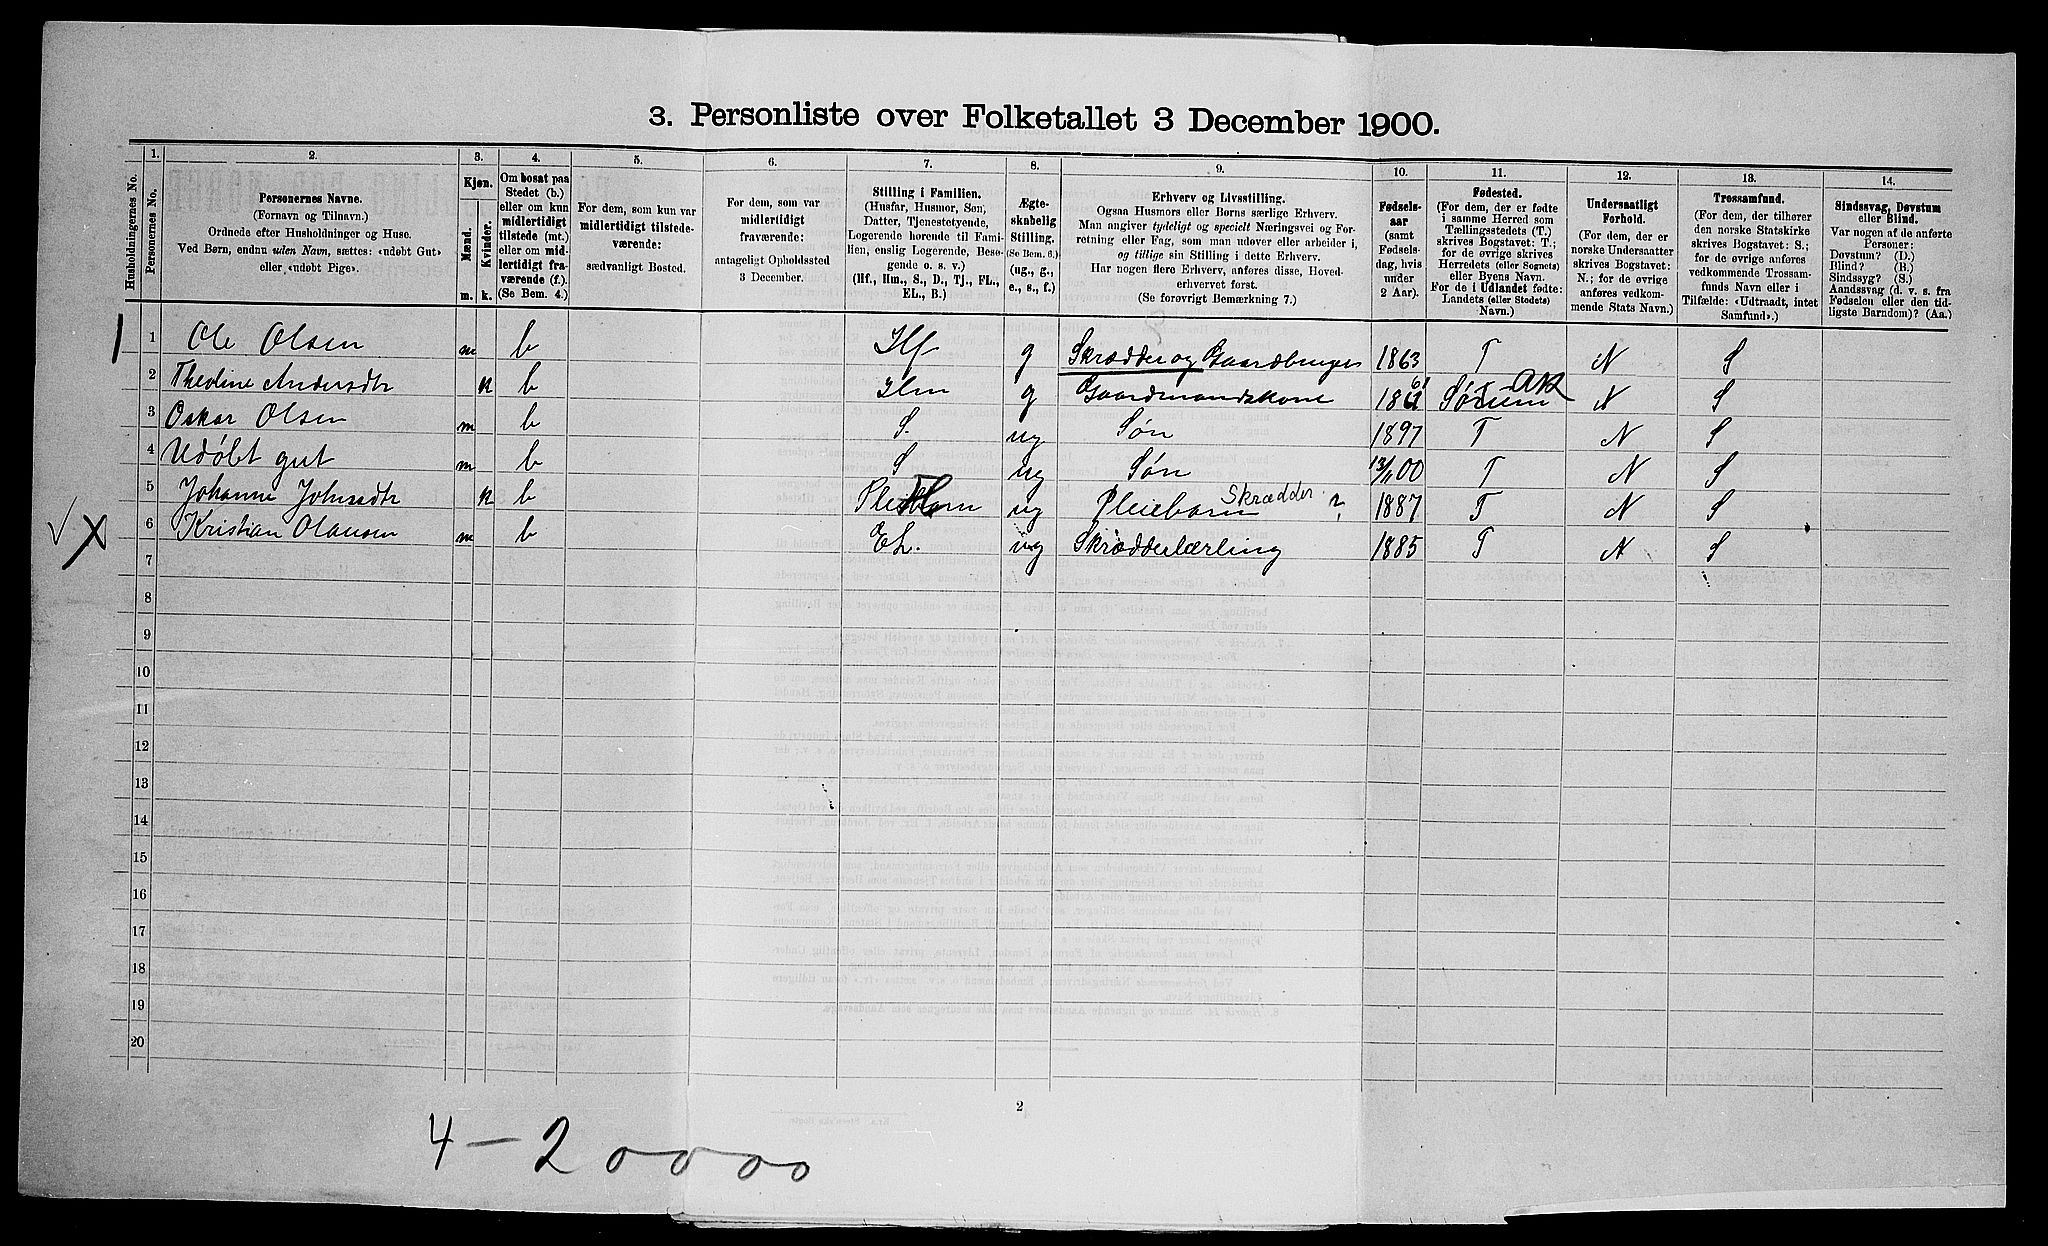 3. Personliste over Folketallet 3 December 1900.
Husholdningernes No.
1. Personernes No.
2. Personernes Navne.
(Fornavn og Tilnavn.)
Ordnede efter Husholdninger og Huse.
Ved Børn, endnu uden Navn, sættes: «udøbt Gut»
eller «udøbt Pige».
3. Kjøn.
Mænd. Kvinder.
m. k.
4. Om bosat paa
Stedet (b.)
eller om kun
midlertidigt
tilstede (mt.)
eller om mid-
lertidigt fra-
værende (f.).
(Se Bem. 4.)
5. For dem, som kun var
midlertidigt tilstede-
værende:
sædvanligt Bosted.
6. For dem, som var
midlertidigt
fraværende:
antageligt Opholdssted
3 December.
7. Stilling i Familien.
(Husfar, Husmor, Søn,
Datter, Tjenestetyende,
Logerende hørende til Fami-
lien, enslig Logerende, Besø-
gende o. s. v.)
(Hf., Hm., S., D., Tj., FL.,
EL., B.)
8. Ægte-
skabelig
Stilling.
(Se Bem. 6.)
(ug., g.,
e., s., f.)
9. Erhverv og Livsstilling.
Ogsaa Husmors eller Børns særlige Erhverv.
Man angiver tydeligt og specielt Næringsvei og For-
retning eller Fag, som man udover eller arbeider i,
og tillige sin Stilling i dette Erhverv.
Har nogen flere Erhverv, anføres disse, Hoved-
erhvervet først.
(Se forøvrigt Bemærkning 7.)
10. Fødsels-
aar
(samt
Fødsels-
dag, hvis
under
2 Aar).
11. Fødested.
(For dem, der er fødte
i samme Herred som
Tællingsstedets (T.)
skrives Bogstavet: T.;
for de øvrige skrives
Herredets (eller Sognets)
eller Byens Navn.
For de i Udlandet fødte:
Landets (eller Stedets)
Navn.)
12. Undersaatligt
Forhold.
(For dem, der er
norske Undersaatter
skrives Bogstavet:
N.; for de øvrige
anføres vedkom-
mende Stats Navn.)
13. Trossamfund.
(For dem, der tilhører
den norske Statskirke
skrives Bogstavet: S.;
for de øvrige anføres
vedkommende Trossam-
funds Navn eller i
Tilfælde: «Udtraadt, intet
Samfund».)
14. Sindssvag, Døvstum
eller Blind.
Var nogen af de anførte
Personer:
Døvstum? (D.)
Blind? (B.)
Sindssyg? (S.)
Aandssvag (d. v. s. fra
Fødselen eller den tid-
ligste Barndom)? (Aa.)
1 1 Ole Olsen m b Hf g Skrædder og Gaardbruger 1863 T N S
2 Theoline Andersdtr k b Hm g Gaardmandskone 1861 Sørum AK N S
3 Oskar Olsen m b S. ug Søn 1897 T N S
4 Udøbt gut m b S ug Søn 13/11 00 T N S
5 Johanne Johnsdtr k b Pleiebarn ug Pleiebarn Skrædder ? 1887 T N S
6 Kristian Olausen m b EL. ug Skrædderlærling 1885 T N S
7
8
9
10
11
12
13
14
15
16
17
18
19
20
2
4 - 2 0 0 0 0